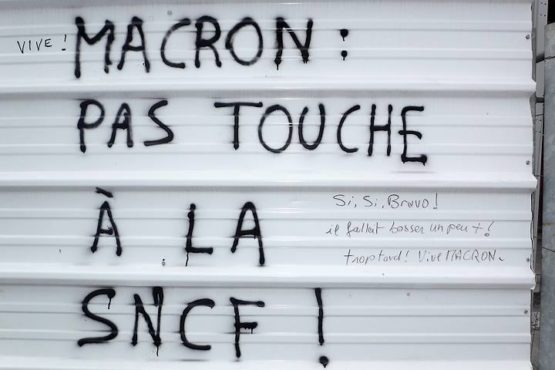 VIVE !
MACRON :
PAS TOUCHE
À LA
Si, Si, Bravo !
il fallait bosser un peu + !
trop tard ! Vive MACRON.
SNCF !